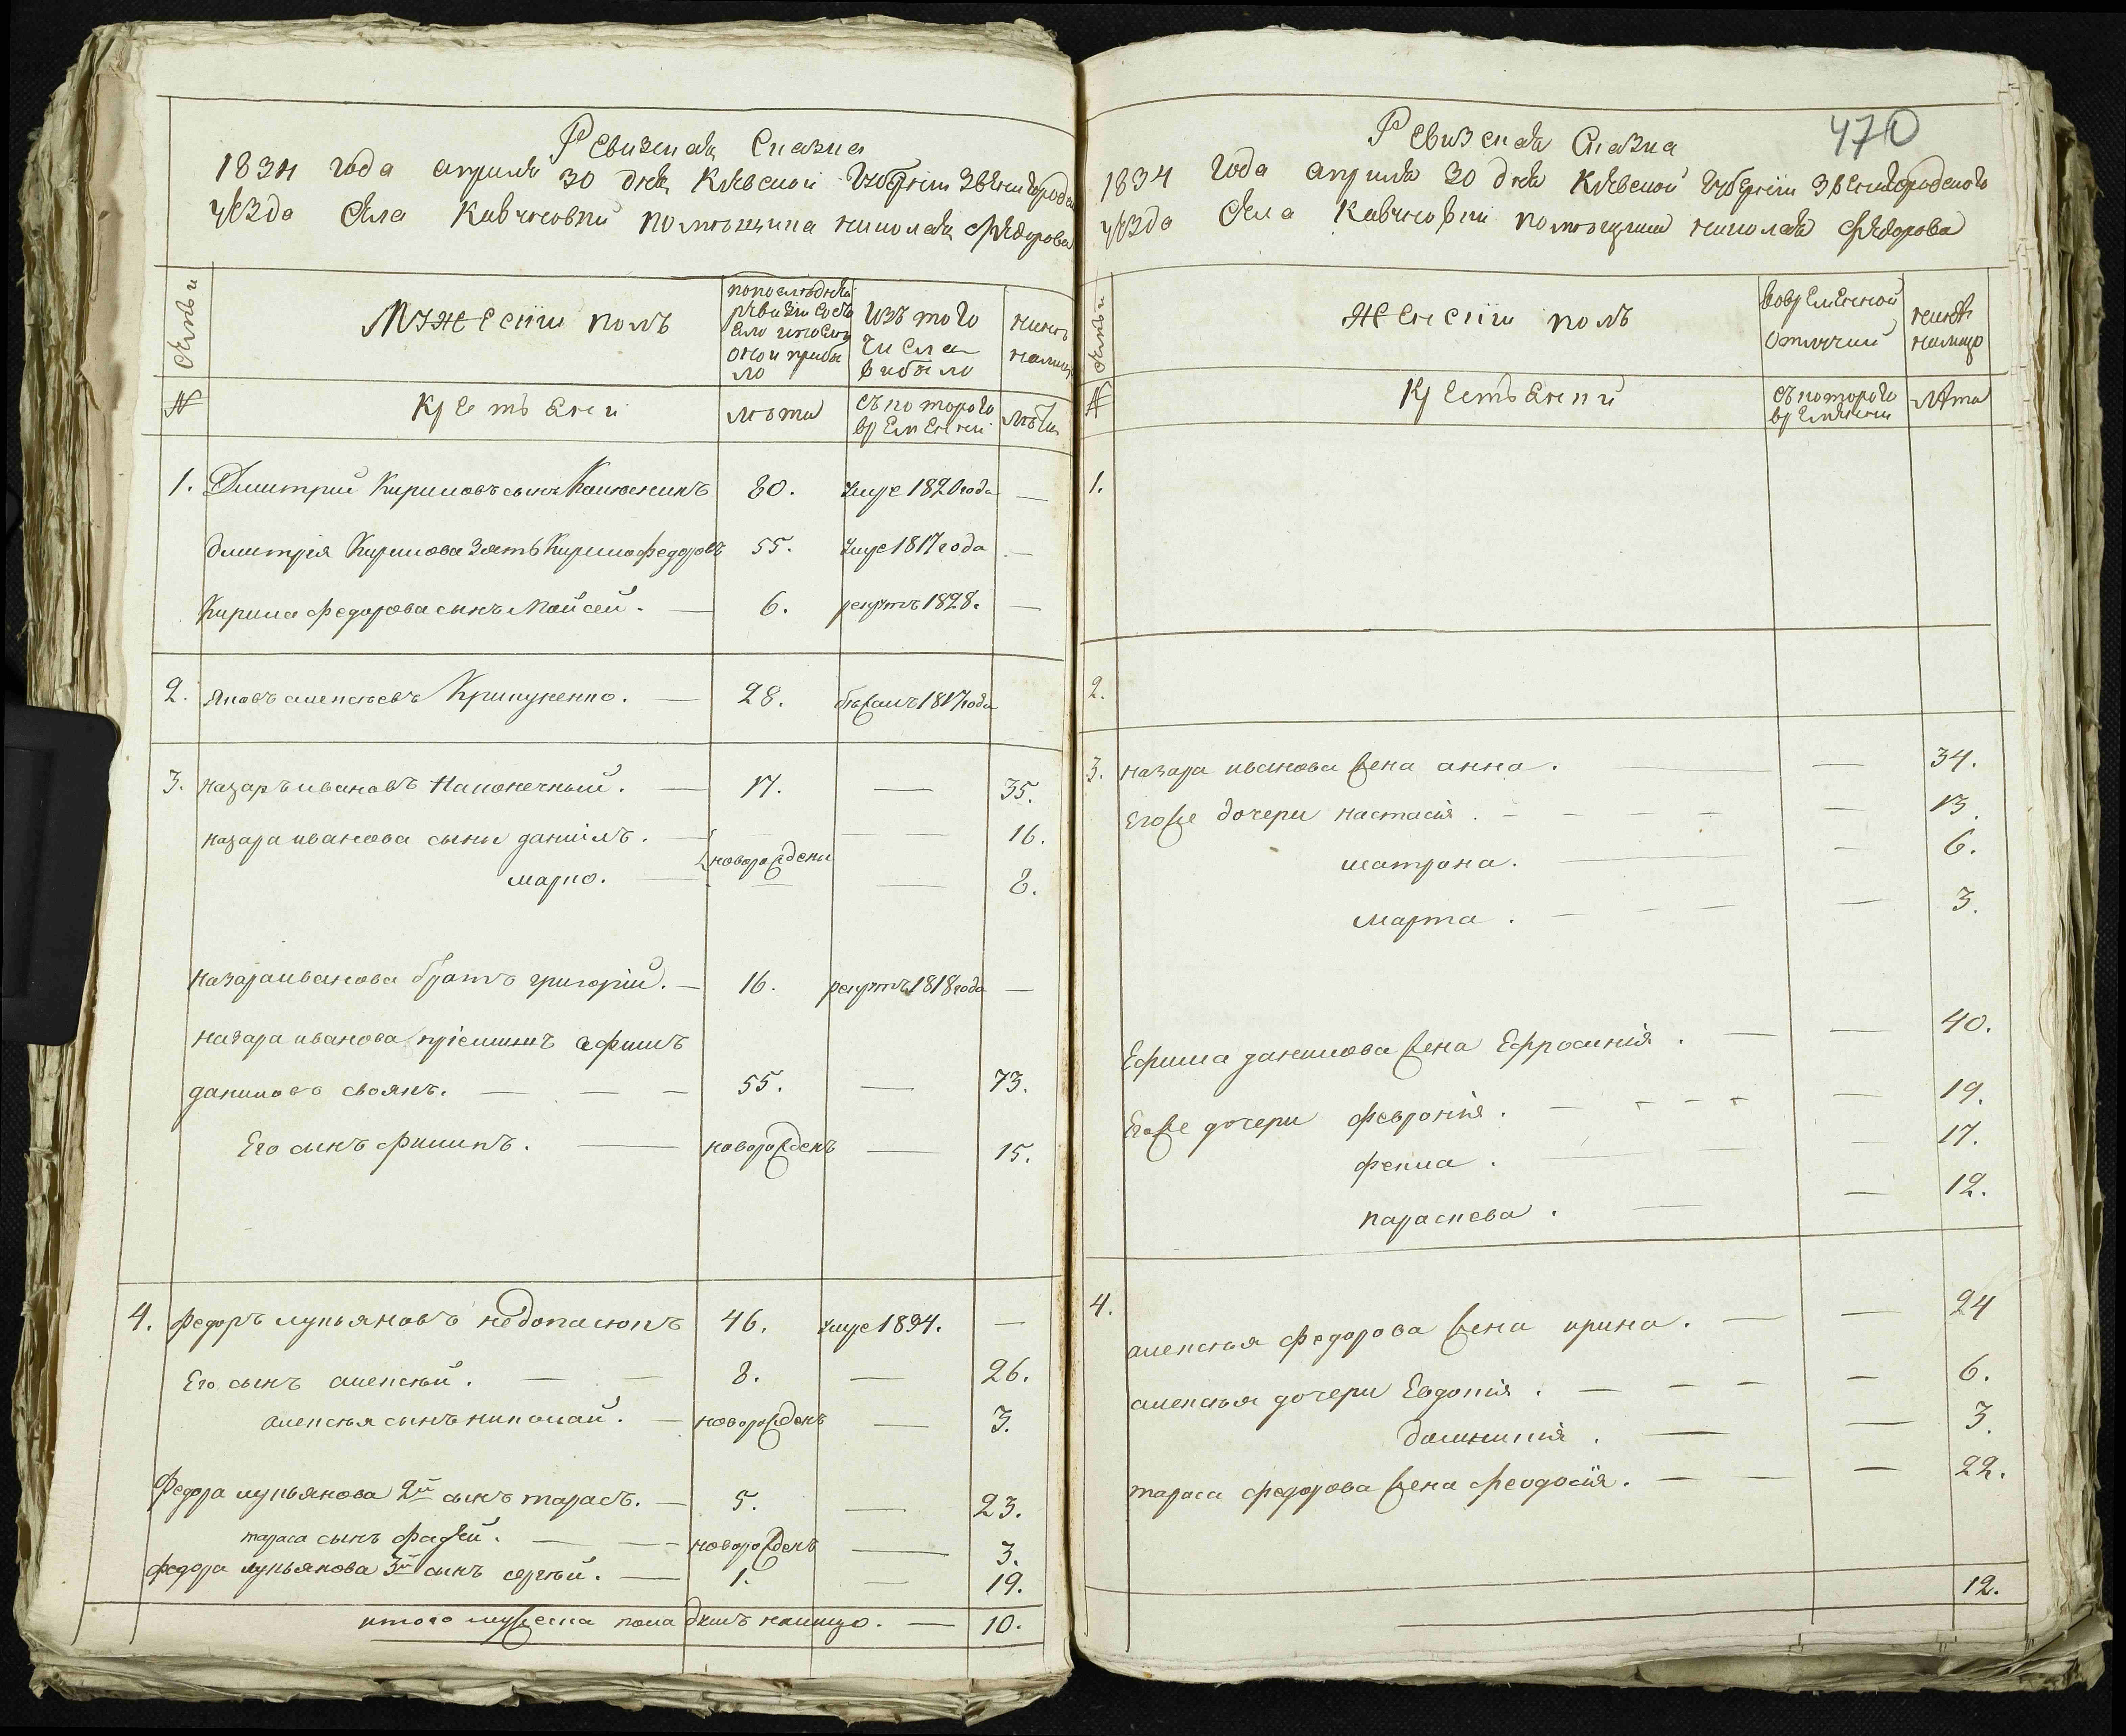 Ревизская Сказка
1834 года апреля 30 дня Киевской Губернии Звенигородского
уезда Села Кавчиовки помѣщика николая Федорова
Семьи
Мужеский полъ
по последней
ревизии состояло и после оной прибыло
Изъ того
числа
выбыло
ныне
налицо
№
Крестьяни
лѣта
съ которого
времени
лѣта
1. Дмитрий Кириловъ сынъ 80. умре 1820 года —
дмитрія Кирилова Зять Кирило федоровъ 55. умре 1817 года —
Кирила федорова сынъ Мойсей. — 6. рекрутъ 1828. —
2. Яковъ алексѣевъ Крикуненко. — 28. бѣжалъ 1817 года
3. назаръ ивановъ Наконечный. — 17. — 35.
назара иванова сыны даниилъ. — — 16.
новорождени
марко. — — 8.
назара иванова братъ григорий. — 16. рекрутъ 1818 года —
назара иванова пріемышъ ефимъ
данилово своякъ. — — — 55. — 73.
Его сынъ филипъ. — новорожденъ — 15.
4. федоръ лукьяновъ недопасюкъ 46. умре 1834. —
Его сынъ алексѣй. — — 8. — 26.
алексѣя сынъ николай. — новорожденъ — 3.
Федора лукьянова 2й сынъ тарасъ. — 5. — 23.
тараса сынъ фадѣй. — — новорожденъ — 3.
федора лукьянова 3й сынъ сергѣй. — 1. — 19.
итого мужеска пола душъ налицо. — 10.
470
Ревизская Сказка
1834 года апреля 30 дня Киевской Губернии Звенигородского
уезда Села Кавчиовки помѣщика николая Федорова
Семьи
Женский полъ
во временной
отлучки
ныне
налицо
№
Крестьянки
съ которого
времени
лѣта
1.
2.
3. назара иванова жена анна. — — 34.
Егоже дочери настасия. — — — — — 13.
матрона. — — 6.
марта. — — — — 3.
Ефима данилова жена Ефросиния. — — 40.
Егоже дочери феврония. — — — — — 19.
фекла. — — — 17.
параскева. — — 12.
4.
алексѣя федорова жена ирина. — — 24
алексѣя дочери Евдокия. — — — — 6.
домникия. — — 3.
тараса федорова жена феодосия. — — — 22.
12.